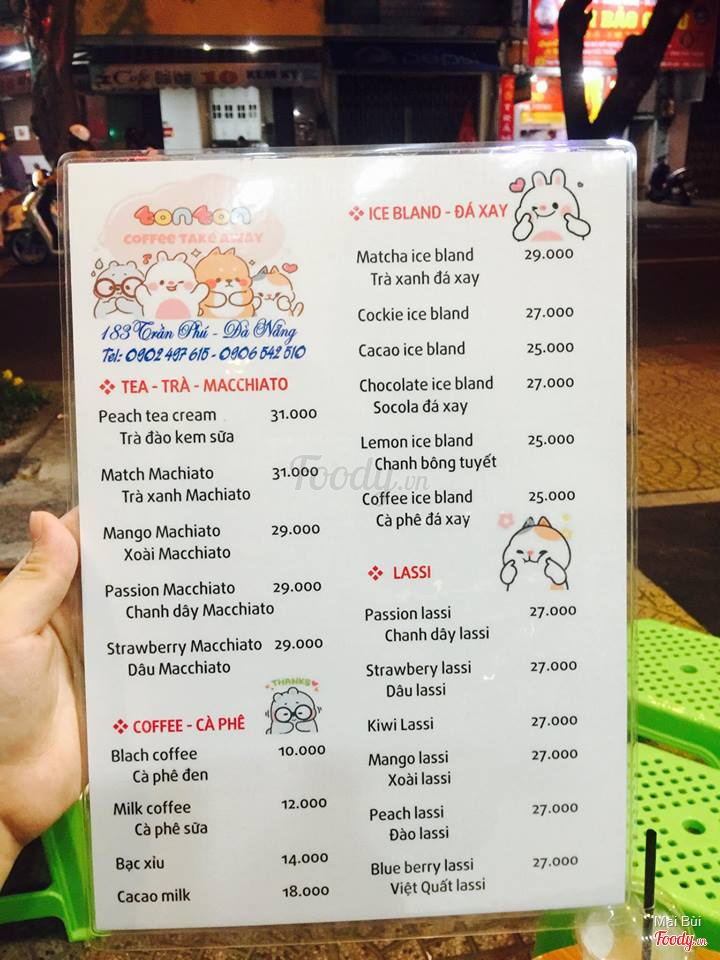 Café
10
KEM KÝ
tonton
COFFEE TAKE AWAY
183 Trần Phú - Đà Nẵng
Tel: 0902 497 615 - 0906 542 510
❖ TEA - TRÀ - MACCHIATO
Peach tea cream 31.000
Trà đào kem sữa
Match Machiato 31.000
Trà xanh Machiato
Mango Machiato 29.000
Xoài Macchiato
Passion Macchiato 29.000
Chanh dây Macchiato
Strawberry Macchiato 29.000
Dâu Macchiato
THANKS
❖ COFFEE - CÀ PHÊ
Blach coffee 10.000
Cà phê đen
Milk coffee 12.000
Cà phê sữa
Bạc xiu 14.000
Cacao milk 18.000
❖ ICE BLAND - ĐÁ XAY
Matcha ice bland 29.000
Trà xanh đá xay
Cockie ice bland 27.000
Cacao ice bland 25.000
Chocolate ice bland 27.000
Socola đá xay
Lemon ice bland 25.000
Chanh bông tuyết
Coffee ice bland 25.000
Cà phê đá xay
❖ LASSI
Passion lassi 27.000
Chanh dây lassi
Strawbery lassi 27.000
Dâu lassi
Kiwi Lassi 27.000
Mango lassi 27.000
Xoài lassi
Peach lassi 27.000
Đào lassi
Blue berry lassi 27.000
Việt Quất lassi
Foody.vn
Mai Bùi
Foody.vn